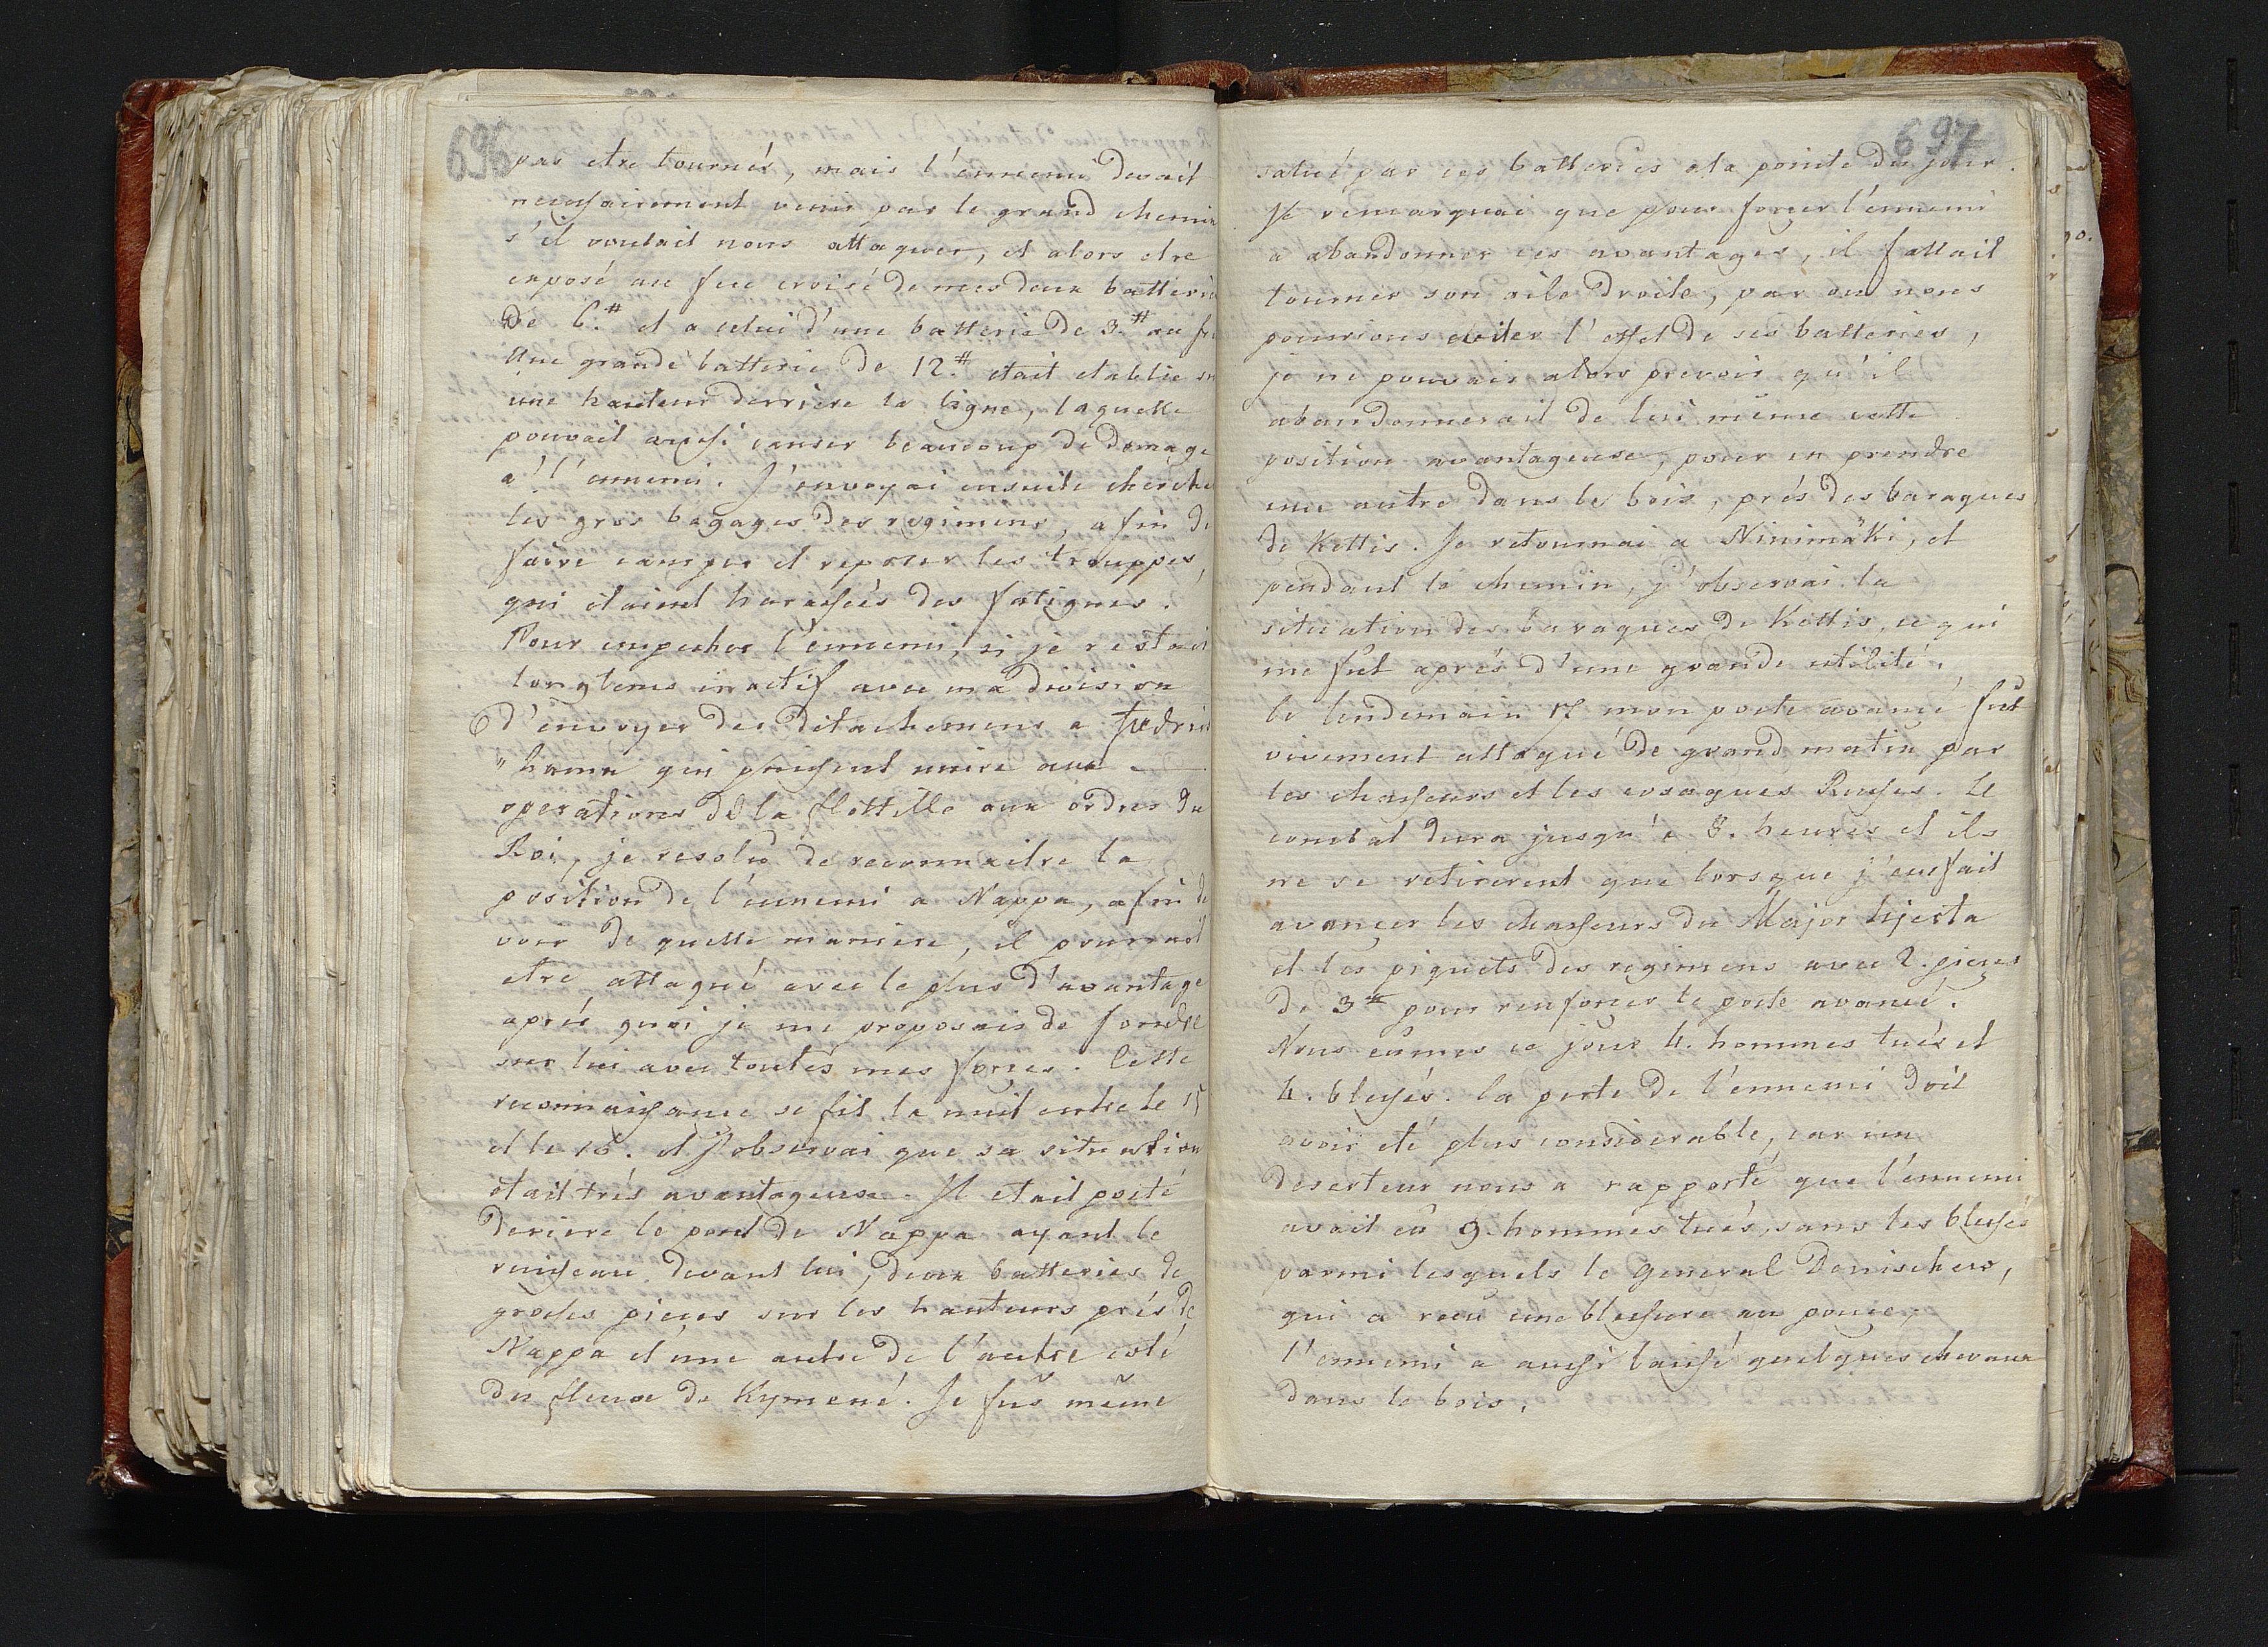 696
pas etre tournés, mais l'ennemi devait
necessairement venir par le grand chemin
s'il voulait nous attaquer, et alors etre
exposé au feu croisé de mes deux batterie
De 6.# et a celui d'une batterie de 3.# au fr
Une grande batterie de 12.# etait etablie su
une hauteur derriere la ligne, laquelle
pouvait aussi causer beaucoup de domage
a' l'ennemi. J'envoyai ensuite cherche
les gros bagages des regimens, afin de
faire camper et reposer les trouppes,
qui étaient harassés des fatigues.
Pour empecher l'ennemi, si je restais
longtems inactif avec ma division
d'envoyer des detachemens a Fredric
"hamn qui puissent nuire aux
operations de la flottille aux ordres du
Roi, je resolus de reconnaitre la
position de l'ennemi a Nappa, afin de
voir de quelle maniere, il pourrait
etre attaqué avec le plus d'avantage
aprés quoi je me proposais de fondre
sur lui avec toutes mes forces. Cette
reconnaissance se fit la nuit entre le 15
et le 16. et j'observai que sa situation
était trés avantageuse. Il etait posté
Deriere le pont de Nappa ayant le
ruisseau devant lui, deux batteries de
grosses pieces sur les hauteurs prés de
Nappa et une autre de l'autre coté
du fleuve de Kymené. Je fus même
697
salué par ces batteries a la pointe du jour.
Je remarquai que pour forcer l'ennemi
a abandonner ces avantages, il fallait
tourner son aile droite, par ou nous
pourions eviter l'effet de ses batteries,
je ne pouvais alors prevoir qu'il
abandonnerait de lui même cette
position avantageuse, pour en prendre
une autre dans le bois, prés des baraques
de Kettis. Je retournai a Ninimäki, et
pendant le chemin, j'observai la
situation des baraques de Kettis, ce qui
me fut aprés d'une grande utilité.
le lendemain 17 mon poste avancé fut
vivement attaqué de grand matin par
les chasseurs et les cosaques Russes. Le
combat dura jusqu'a 8. heures et ils
ne se retirerent que lorsque j'eus fait
avancer les chasseurs du Major Hjerta
et les piquets des regimens avec 2. pieces
de 3# pour renforcer le poste avancé.
Nous eumes ce jour 4. hommes tués et
4. blessés. la perte de l'ennemi doit
avoir eté plus considerable, car un
deserteur nous a rapporté que l'ennemi
avait eu 9. hommes tués, sans les blessés
parmi lesquels le General Denischew,
qui a recu une blessure au pouce.
l'ennemi a aussi laissé quelques chevaux
dans le bois.